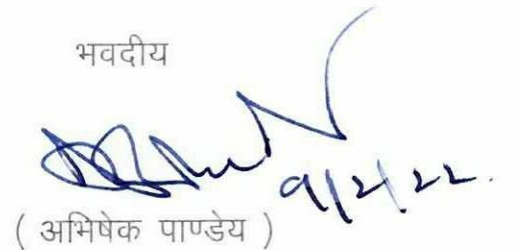 भवदीय
9/2/22.
( अभिषेक पाण्डेय )